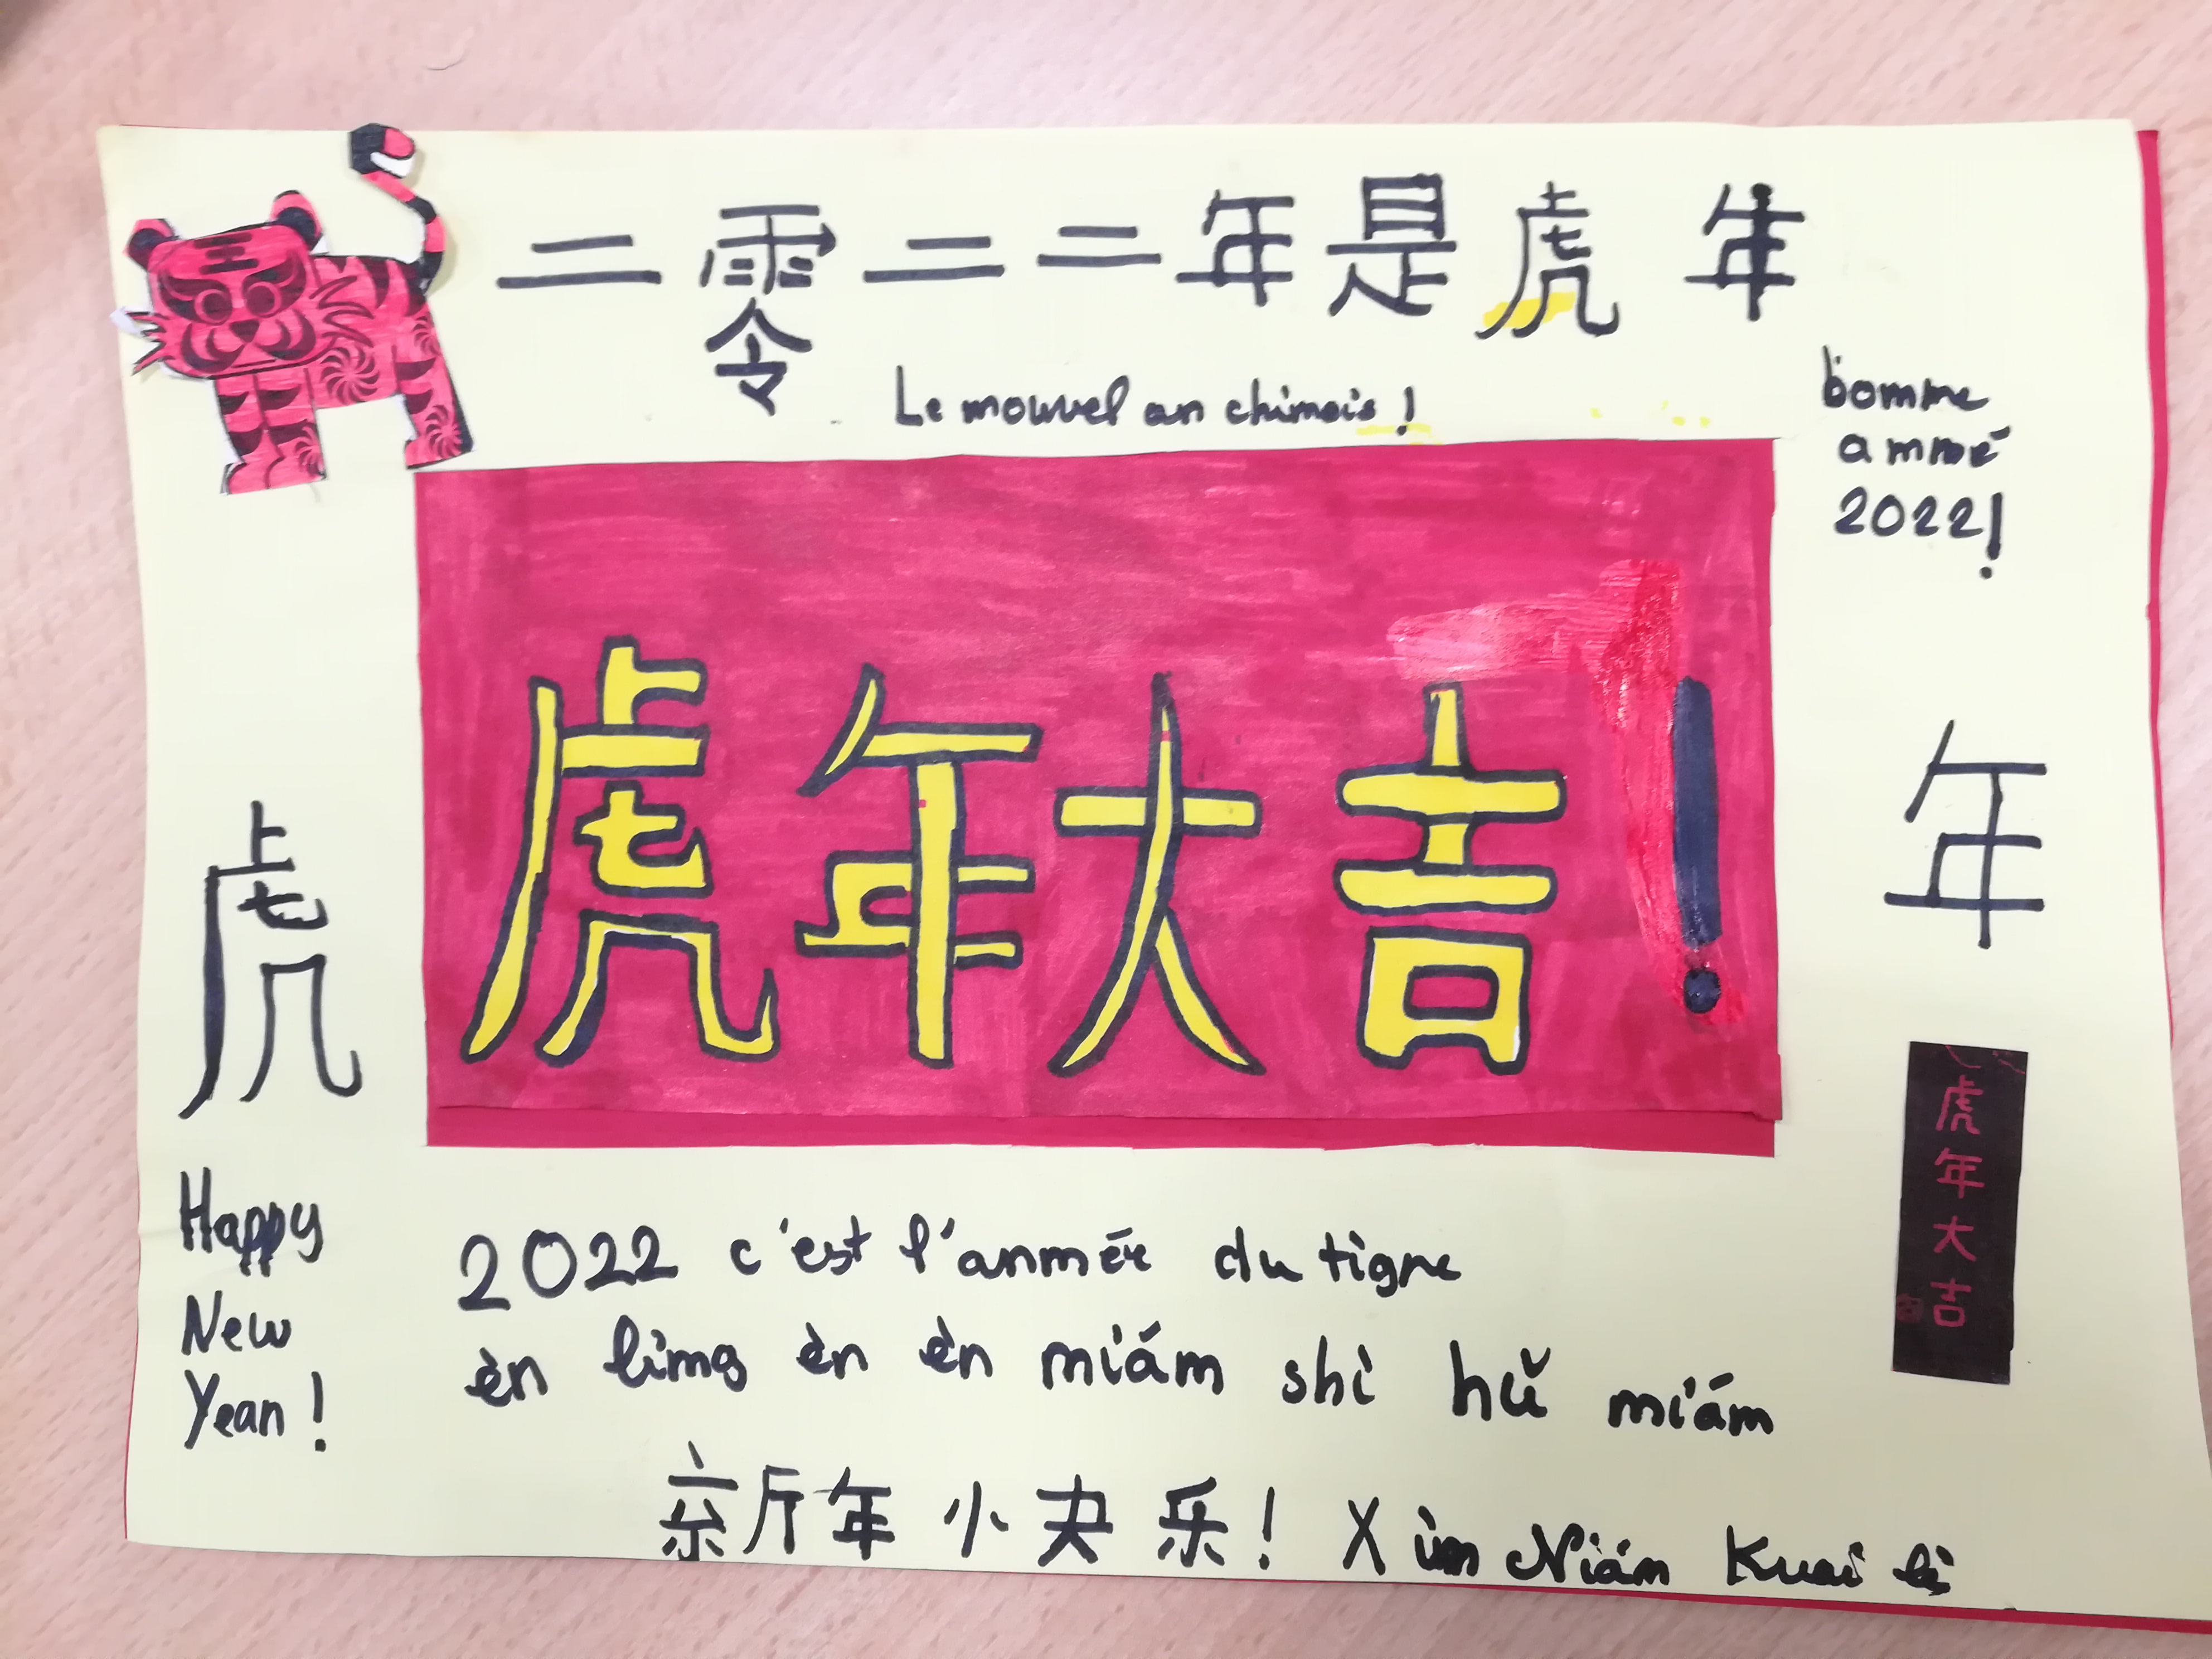 二零二二年是虎年
Le nouvel an chinois !
bonne
anné
2022!
虎年大吉!
虎
年
虎
年
大
吉
Happy
New
Year !
2022 c'est l'année du tigre
èn líng èn èn nián shì hǔ nián
新年快乐! Xīn Nián Kuai lè